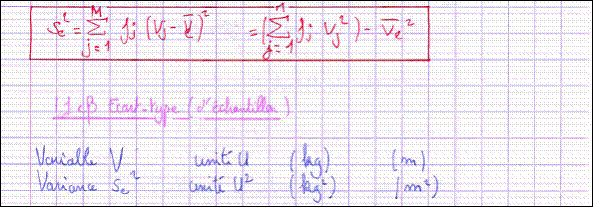 Se² = Σ_{j=1}^{M} fj (Vj - v̄e)² = (Σ_{j=1}^{M} fj Vj²) - V̄e²
Ecart-type (d'échantillon)
Variable V unité U (kg) (m)
Variance Se² unité U² (kg²) (m²)